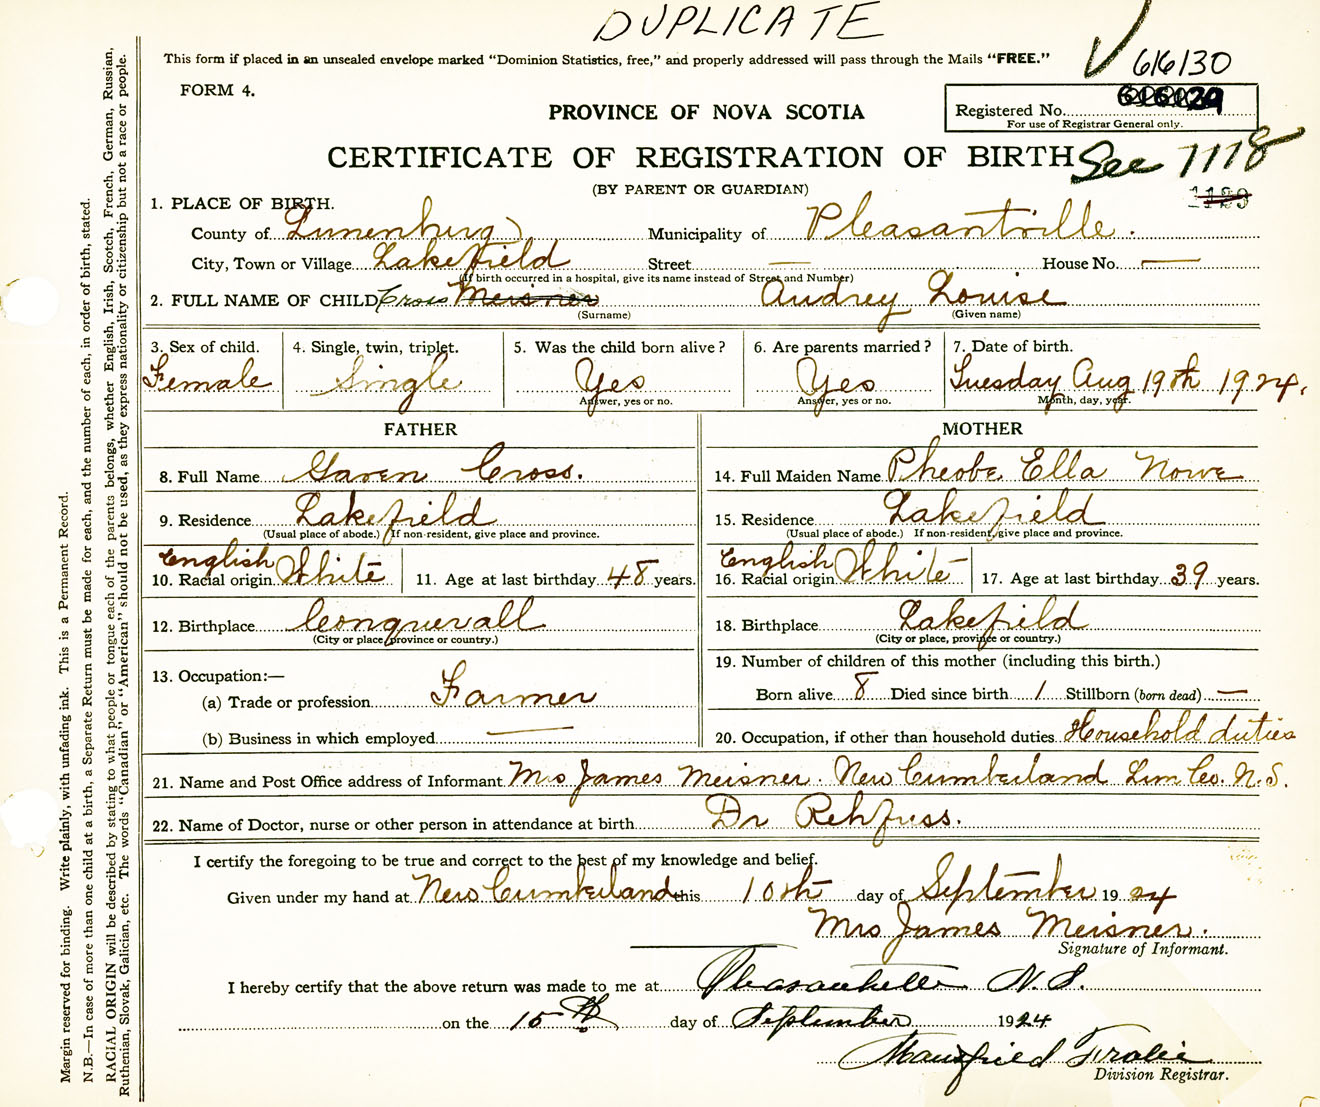 DUPLICATE
This form if placed in an unsealed envelope marked "Dominion Statistics, free," and properly addressed will pass through the Mails "FREE."
616130
FORM 4.
PROVINCE OF NOVA SCOTIA
Registered No.
For use of Registrar General only.
CERTIFICATE OF REGISTRATION OF BIRTH See 7118
(BY PARENT OR GUARDIAN)
1. PLACE OF BIRTH.
County of Lunenburg Municipality of Pleasantville.
City, Town or Village Lakefield Street — House No. —
(If birth occurred in a hospital, give its name instead of Street and Number)
2. FULL NAME OF CHILD Cross Meisner Audrey Louise
(Surname) (Given name)
3. Sex of child. 4. Single, twin, triplet. 5. Was the child born alive? 6. Are parents married? 7. Date of birth.
Female Single Yes Yes Tuesday Aug 19th 1924.
Answer, yes or no. Answer, yes or no. Month, day, year.
FATHER MOTHER
8. Full Name Garen Cross. 14. Full Maiden Name Pheobe Ella Nowe
9. Residence Lakefield 15. Residence Lakefield
(Usual place of abode.) If non-resident, give place and province. (Usual place of abode.) If non-resident, give place and province.
English English
10. Racial origin White 11. Age at last birthday 48 years. 16. Racial origin White 17. Age at last birthday 39 years.
12. Birthplace Conquerall 18. Birthplace Lakefield
(City or place, province or country.) (City or place, province or country.)
13. Occupation:— 19. Number of children of this mother (including this birth.)
(a) Trade or profession Farmer Born alive 8 Died since birth 1 Stillborn (born dead) —
(b) Business in which employed — 20. Occupation, if other than household duties Household duties
21. Name and Post Office address of Informant Mrs James Meisner. New Cumberland Lun Co. N.S.
22. Name of Doctor, nurse or other person in attendance at birth Dr Rehfuss.
I certify the foregoing to be true and correct to the best of my knowledge and belief.
Given under my hand at New Cumberland this 10th day of September 1924
Mrs James Meisner.
Signature of Informant.
I hereby certify that the above return was made to me at Pleasantville N.S.
on the 15th day of September 1924
Mansfield Fralic
Division Registrar.
Margin reserved for binding. Write plainly, with unfading ink. This is a Permanent Record.
N.B.—In case of more than one child at a birth, a Separate Return must be made for each, and the number of each, in order of birth, stated.
RACIAL ORIGIN will be described by stating to what people or tongue each of the parents belongs, whether English, Irish, Scotch, French, German, Russian,
Ruthenian, Slovak, Galician, etc. The words "Canadian" or "American" should not be used, as they express nationality or citizenship but not a race or people.